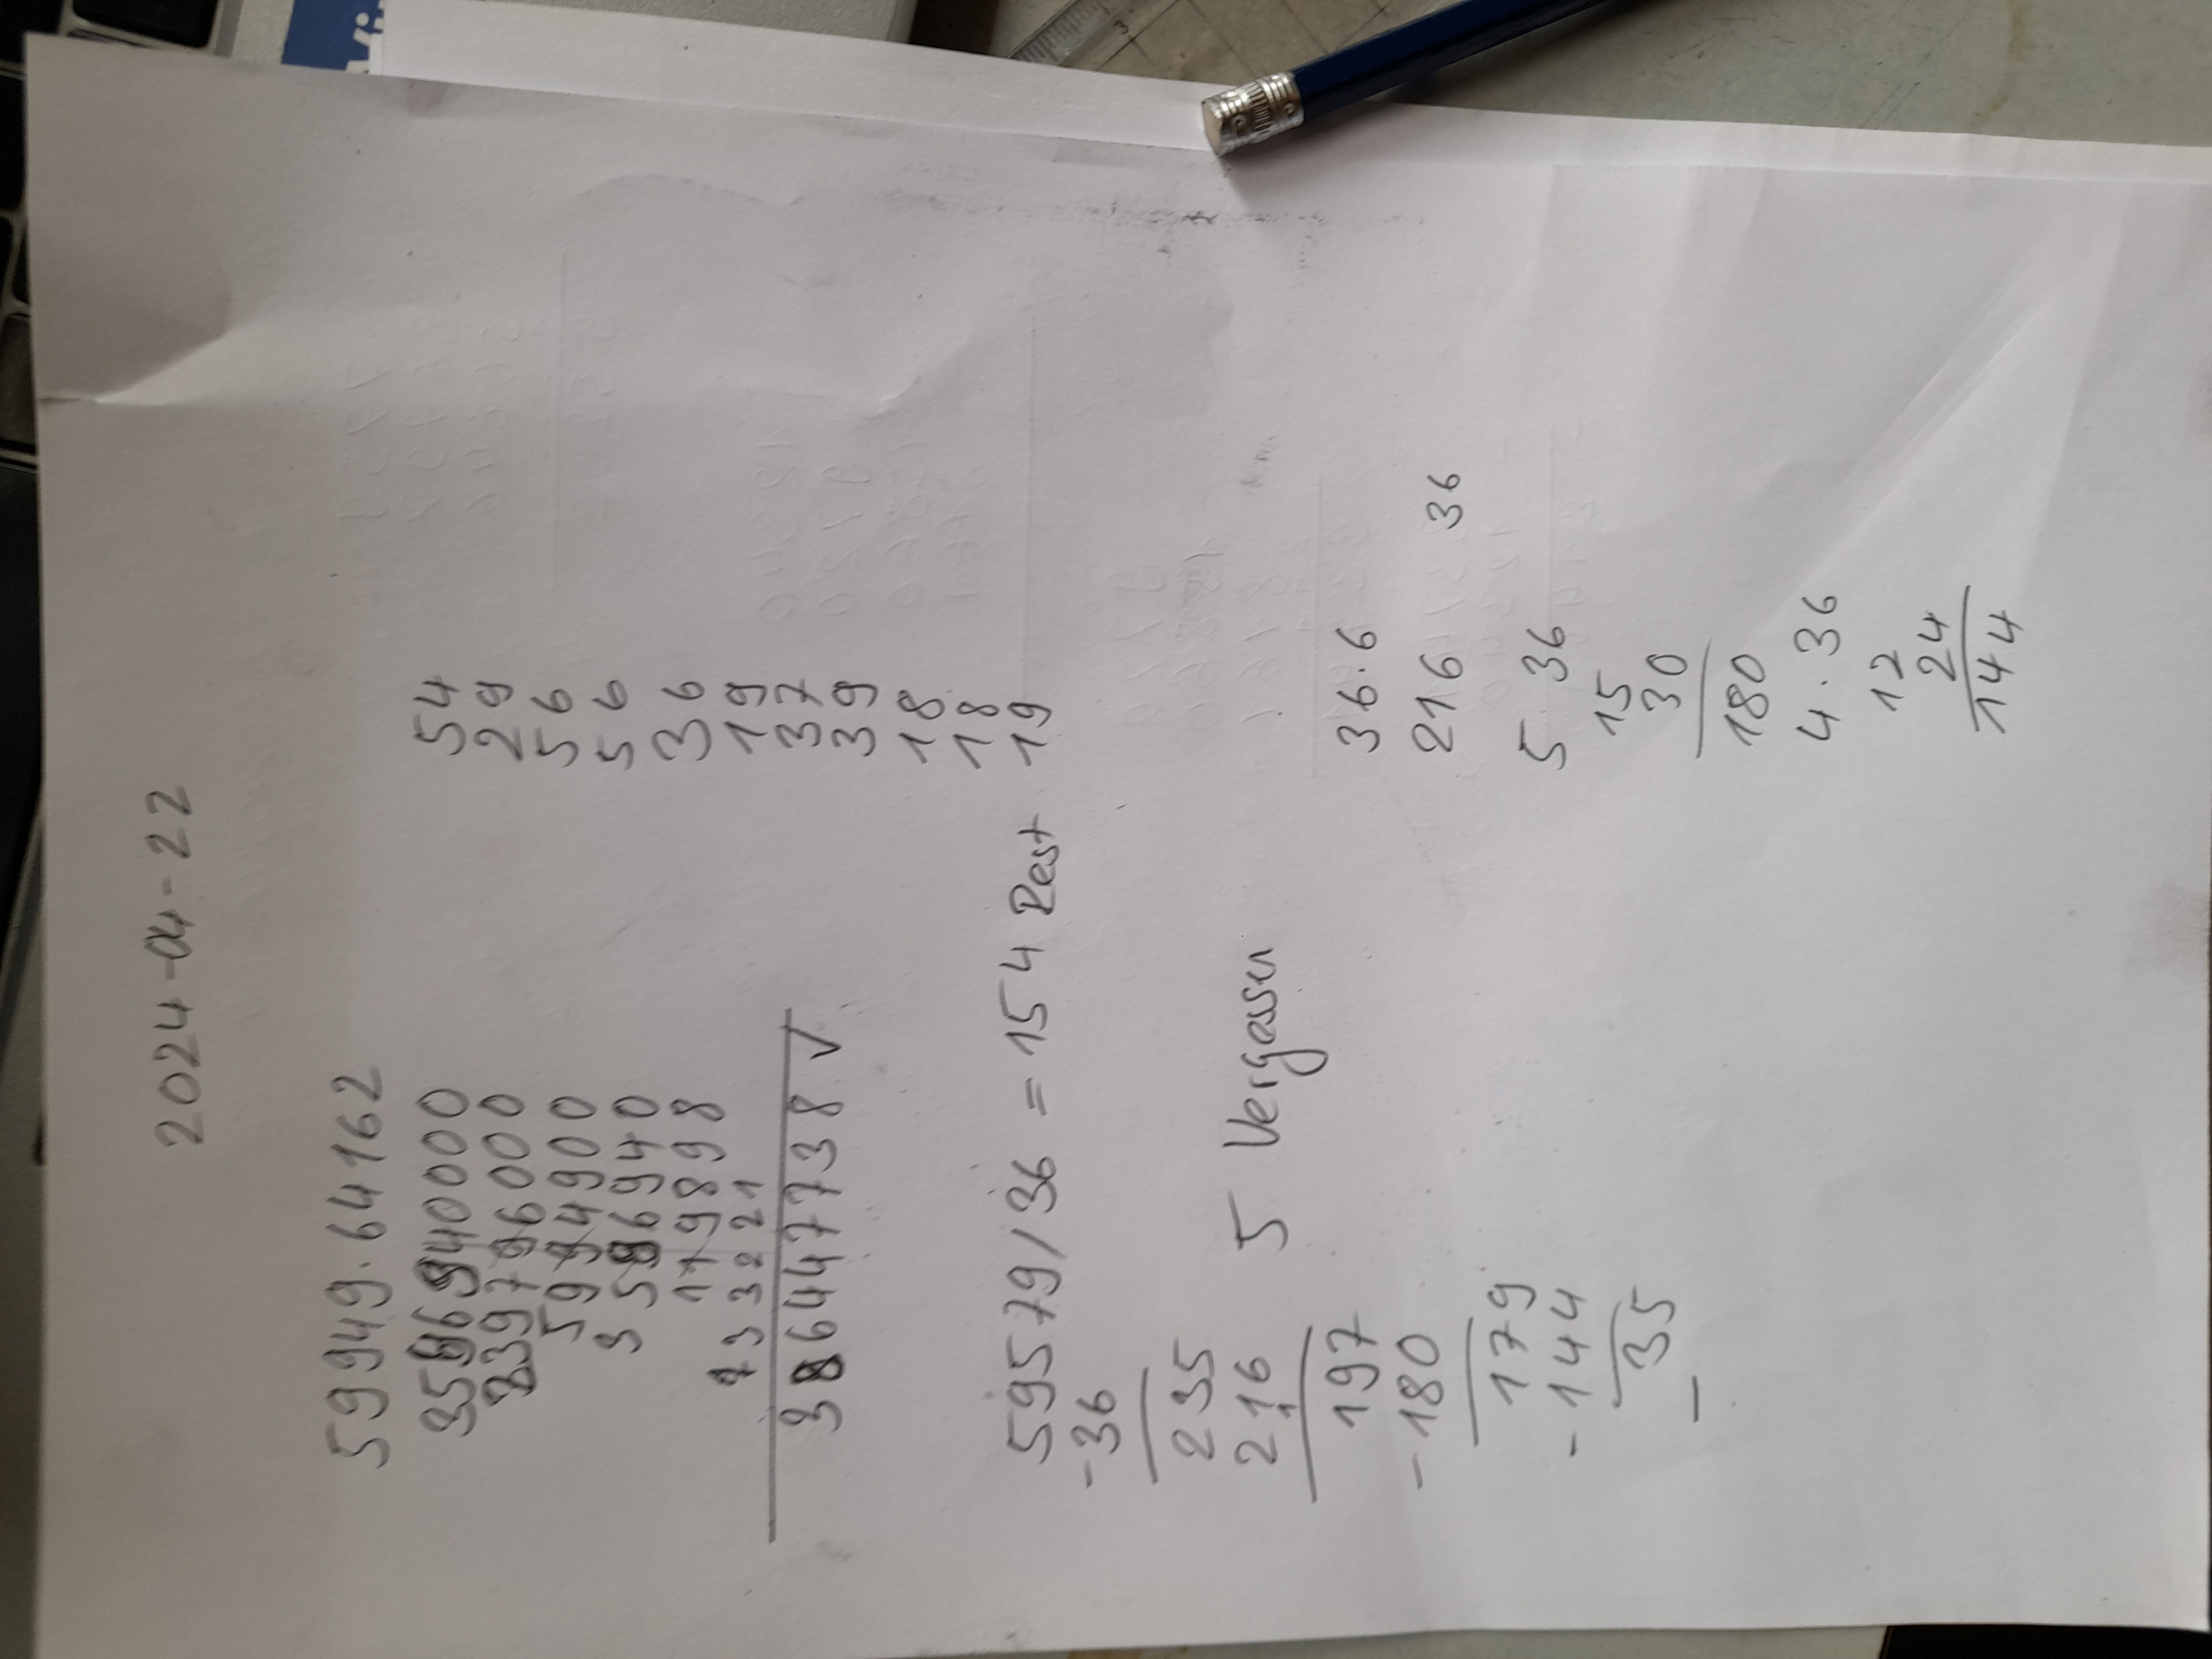 2024-04-22
59949.64162
3596940000
239796000
5994900
3596940
119898
1 3 3 2 2 1
3 8 6447738 ✓
54
29
56
56
36
19
37
39
18
18
19
59579/36 = 154 Rest
-36
235
216
1
5 Vergessen
197
-180
179
-144
35
-
36.6
216 36
5 . 36
15
30
180
4 . 36
12
24
144